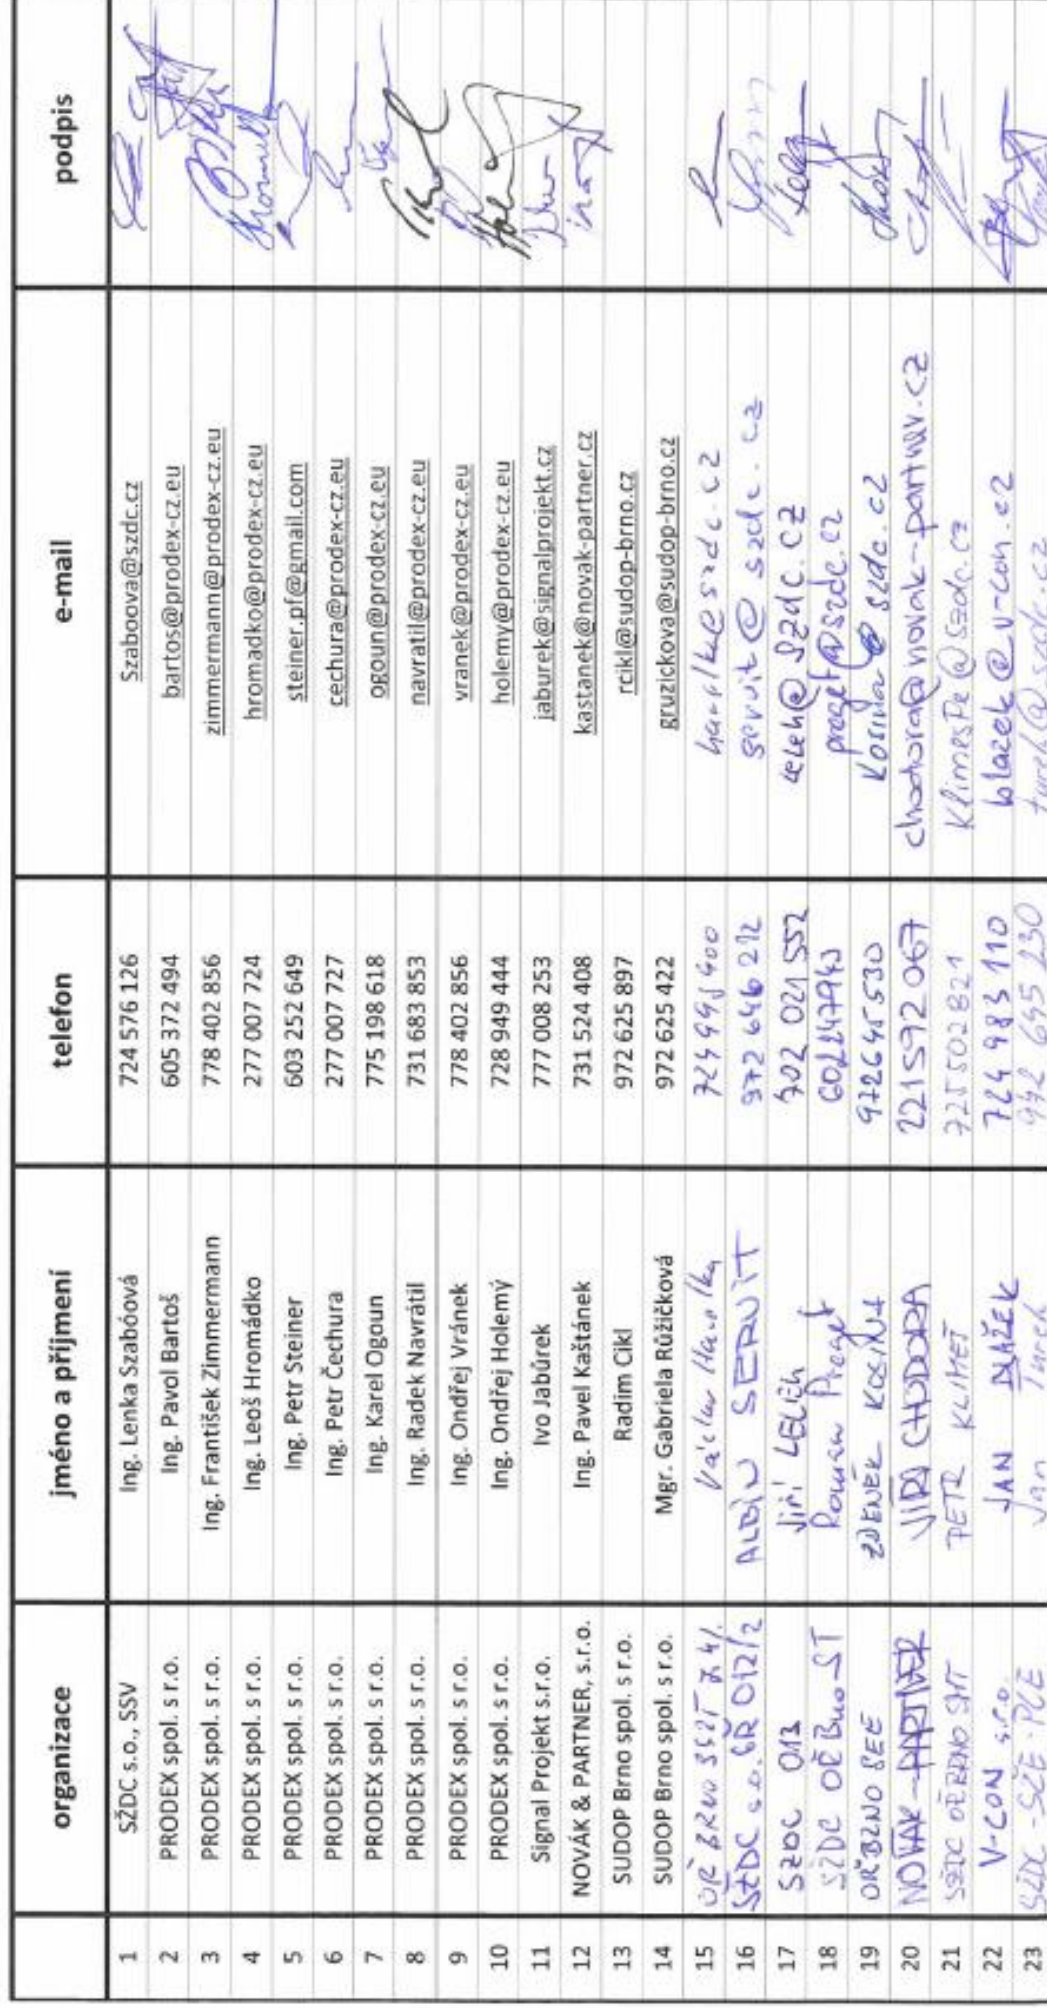 organizace jméno a příjmení telefon e-mail podpis
1 SŽDC s.o., SSV Ing. Lenka Szabóová 724 576 126 Szaboova@szdc.cz
2 PRODEX spol. s r.o. Ing. Pavol Bartoš 605 372 494 bartos@prodex-cz.eu
3 PRODEX spol. s r.o. Ing. František Zimmermann 778 402 856 zimmermann@prodex-cz.eu
4 PRODEX spol. s r.o. Ing. Leoš Hromádko 277 007 724 hromadko@prodex-cz.eu
5 PRODEX spol. s r.o. Ing. Petr Steiner 603 252 649 steiner.pf@gmail.com
6 PRODEX spol. s r.o. Ing. Petr Čechura 277 007 727 cechura@prodex-cz.eu
7 PRODEX spol. s r.o. Ing. Karel Ogoun 775 198 618 ogoun@prodex-cz.eu
8 PRODEX spol. s r.o. Ing. Radek Navrátil 731 683 853 navratil@prodex-cz.eu
9 PRODEX spol. s r.o. Ing. Ondřej Vránek 778 402 856 vranek@prodex-cz.eu
10 PRODEX spol. s r.o. Ing. Ondřej Holemý 728 949 444 holemy@prodex-cz.eu
11 Signal Projekt s.r.o. Ivo Jabůrek 777 008 253 jaburek@signalprojekt.cz
12 NOVÁK & PARTNER, s.r.o. Ing. Pavel Kaštánek 731 524 408 kastanek@novak-partner.cz
13 SUDOP Brno spol. s r.o. Radim Cikl 972 625 897 rcikl@sudop-brno.cz
14 SUDOP Brno spol. s r.o. Mgr. Gabriela Růžičková 972 625 422 gruzickova@sudop-brno.cz
15 OŘ BRNO Václav
16 SŽDC s.o. ALBÍN SERVÍT servit@szdc.cz
17 SŽDC 013 Jiří 702 021 552 @szdc.cz
18 SŽDC OŘ Brno ST Roman 602247943 @szdc.cz
19 OŘ BRNO SEE ZDENĚK KOSINA 972645530 kosina@szdc.cz
20 NOVÁK-PARTNER JIŘÍ CHODORA 221592067 chodora@novak-partner.cz
21 SŽDC OŘ BRNO PETR KLIMEŠ 725502821 KlimesPe@szdc.cz
22 V-CON s.r.o. JAN BLAŽEK 724 983 110 blazek@v-con.cz
23 SŽDC Jan Turek turek@szdc.cz